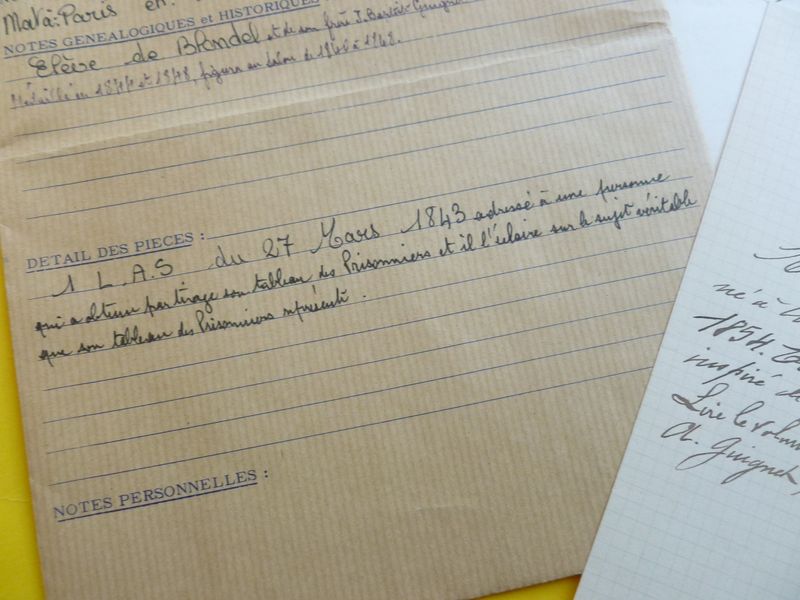 Mata: Paris en.
NOTES GENEALOGIQUES et HISTORIQUES
Elève de Blondel et de son frère J. Guignet
Médaille en 1844 et 1848, figura au salon de 1840 à 1848.
DETAIL DES PIECES :
1 L.A.S du 27 Mars 1843 adressé à une personne
qui a obtenu par tirage son tableau des Prisonniers et il l'éclaire sur le sujet véritable
que son tableau des Prisonniers représente.
NOTES PERSONNELLES :
né à
1854.
inspiré de
Lire le volum
A. Guignet,